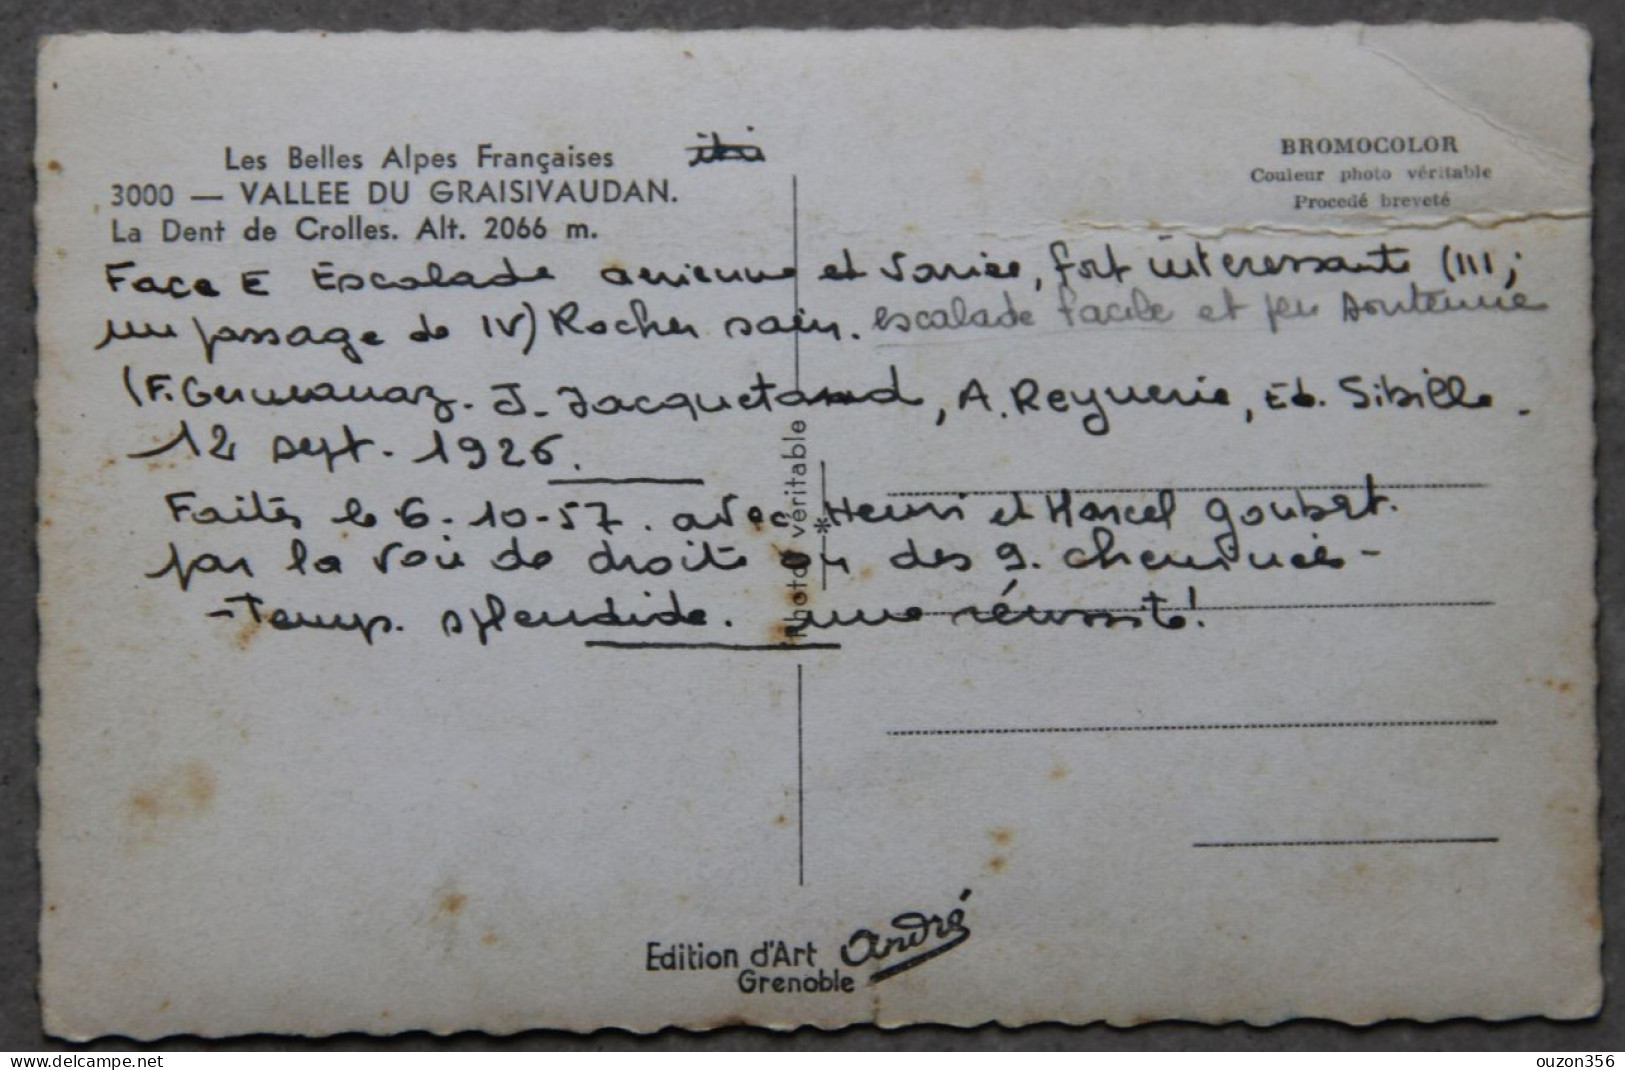 Les Belles Alpes Françaises
3000 — VALLEE DU GRAISIVAUDAN.
La Dent de Crolles. Alt. 2066 m.
BROMOCOLOR
Couleur photo véritable
Procedé breveté
Face E Escalade aerienne et variée, fort interessante (III;
un passage de IV) Rocher sain. escalade facile et peu soutenue
(F. Germanaz. J. Jacquetand, A. Reynerie, Ed. Sibille.
12 sept. 1926.
Faites le 6-10-57. avec Henri et Marcel Goubet.
par la voie de droite ou des 9. cheminées -
- Temp. splendide. une réussite!
Photo véritable
Edition d'Art André
Grenoble
delcampe.net
ouzon356